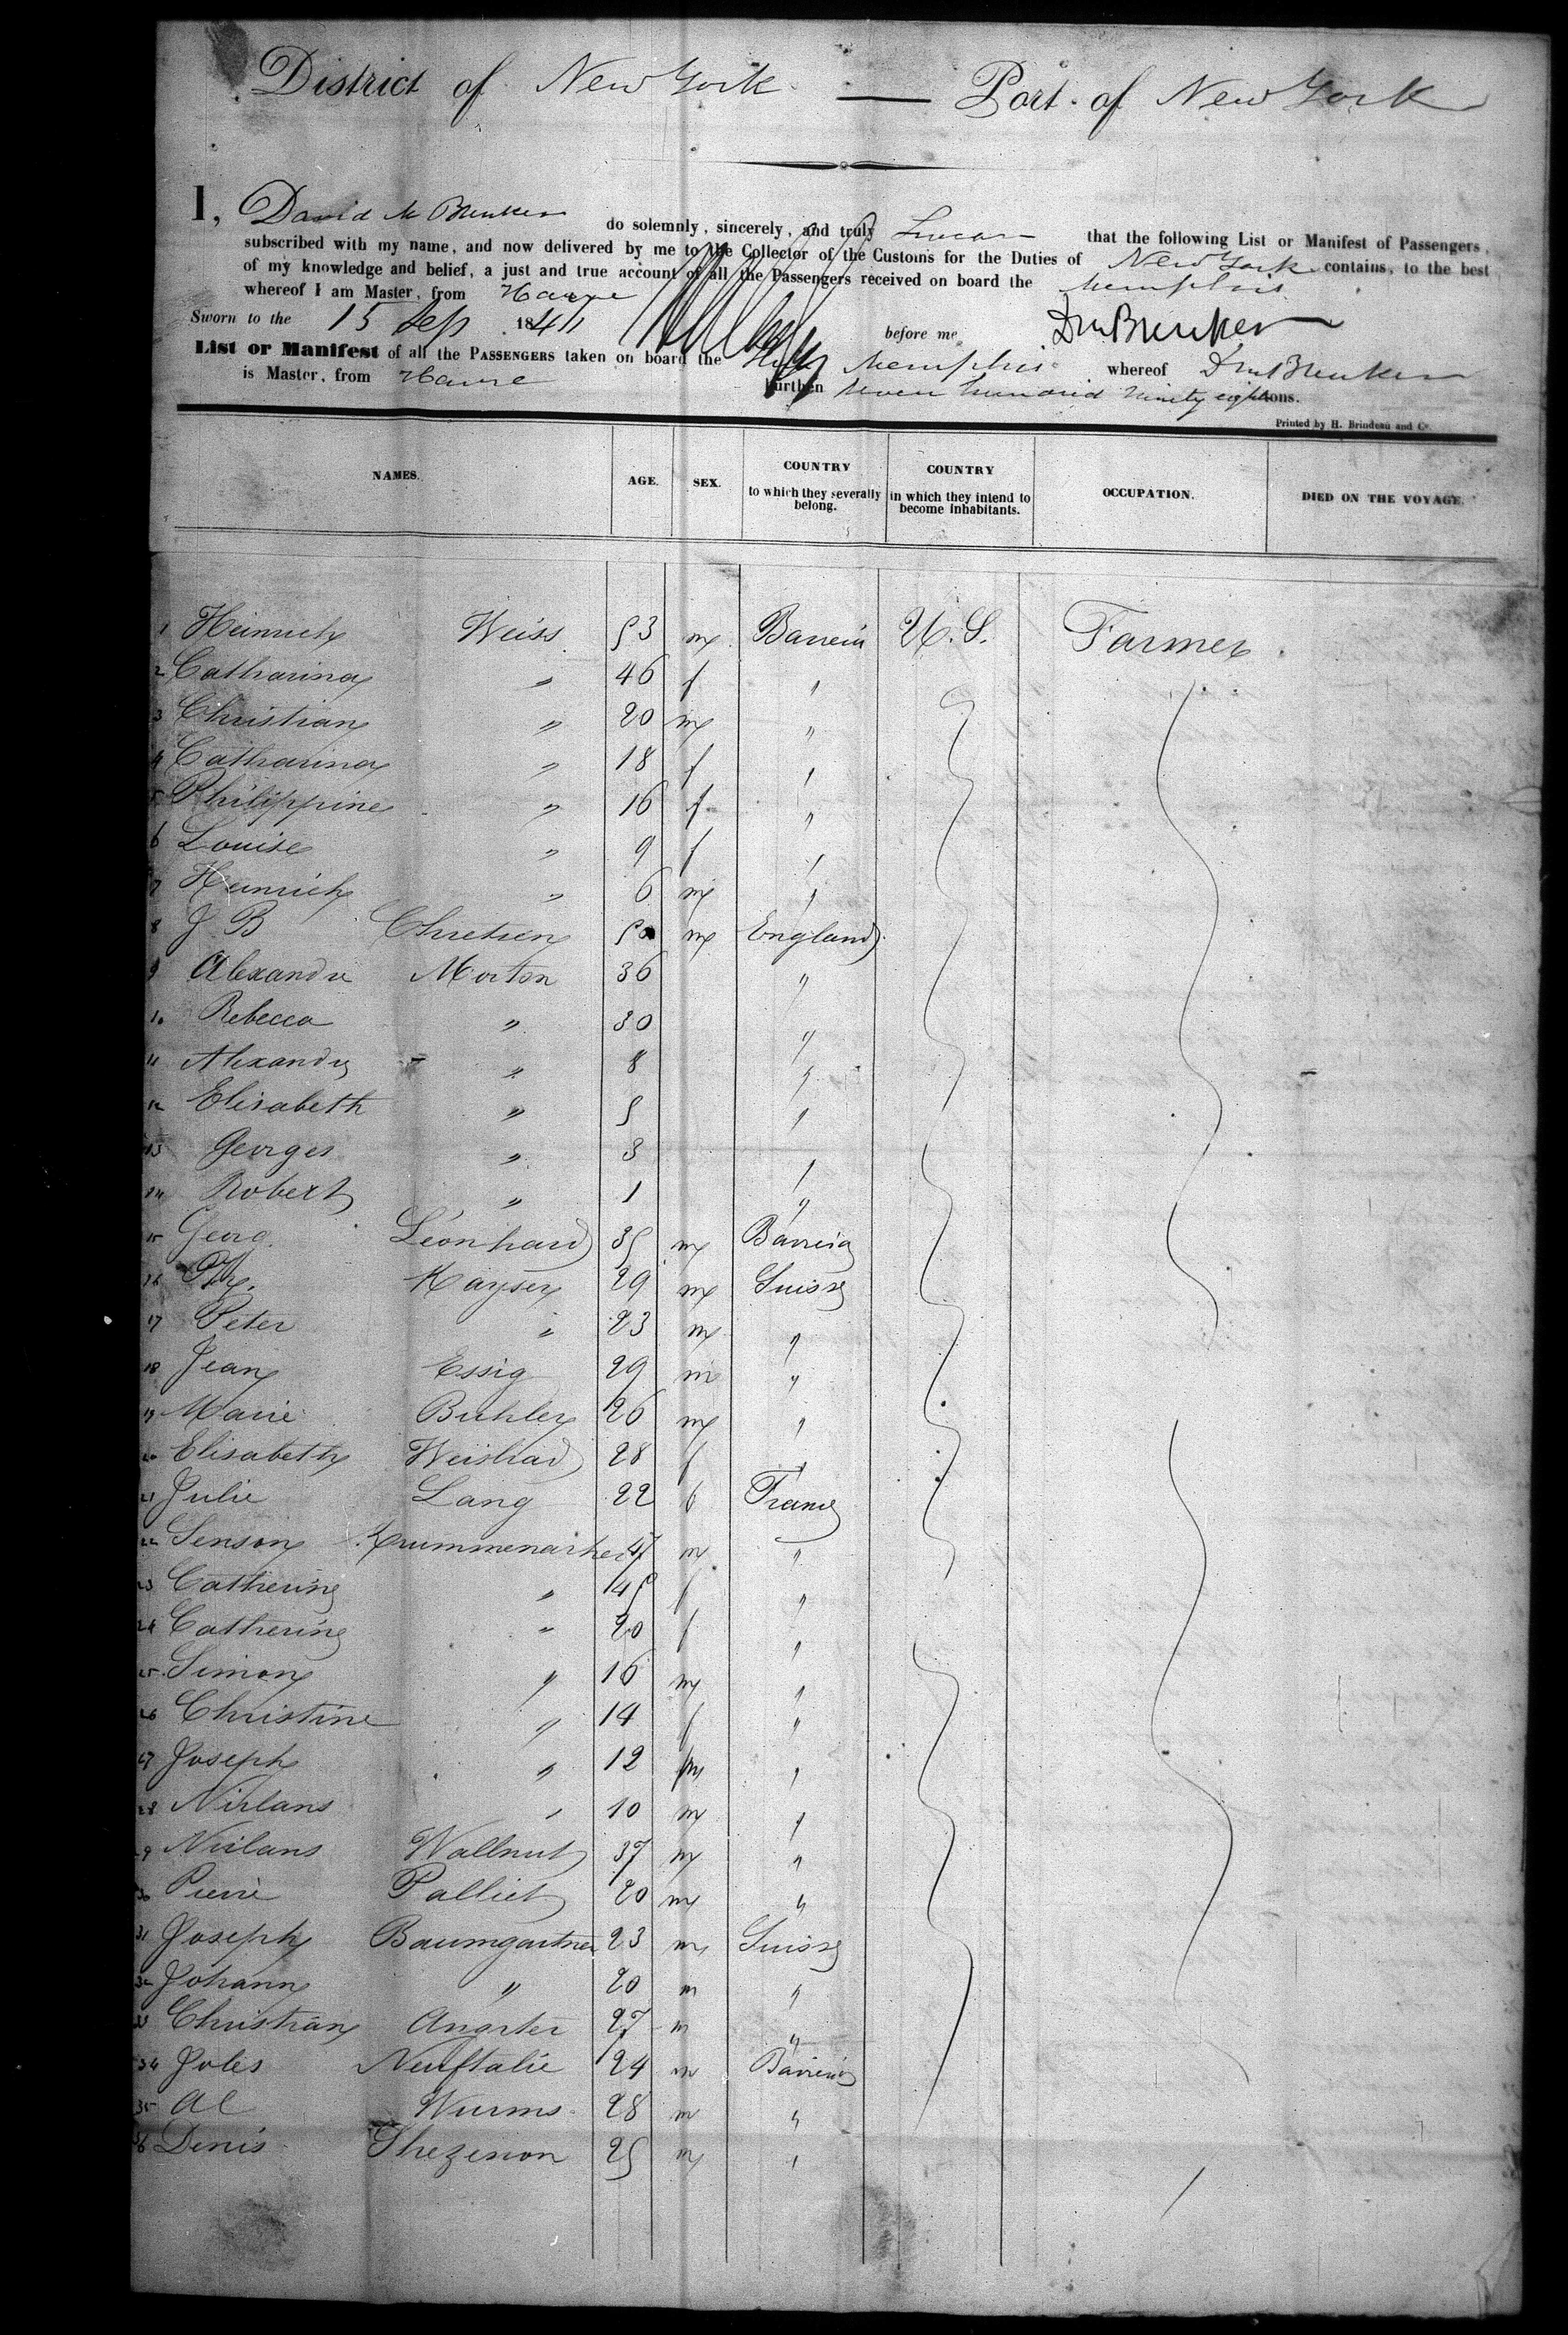 District of New York — Port of New York
I, David M Bunker do solemnly, sincerely, and truly Swear that the following List or Manifest of Passengers,
subscribed with my name, and now delivered by me to the Collector of the Customs for the Duties of New York contains, to the best
of my knowledge and belief, a just and true account of all the Passengers received on board the Memphis
whereof I am Master, from Havre
Sworn to the 15 Sep 1841 before me, D M Bunker
List or Manifest of all the PASSENGERS taken on board the Ship Memphis whereof D M Bunker
is Master, from Havre burthen seven hundred ninety eight tons.
Printed by H. Brindeau and Co.
NAMES. AGE. SEX. COUNTRY to which they severally belong. COUNTRY in which they intend to become inhabitants. OCCUPATION. DIED ON THE VOYAGE.
1 Heinrich Weiss 53 m Bavieria U.S. Farmer
2 Catharina " 46 f "
3 Christian " 20 m "
4 Catharina " 18 f "
5 Philippine " 16 f "
6 Louise " 9 f "
7 Heinrich " 6 m "
8 J B Chretien 50 m England
9 Alexandre Morton 36 "
10 Rebecca " 30 "
11 Alexandre " 8 "
12 Elisabeth " 5 "
13 Georges " 3 "
14 Robert " 1 "
15 Georg Léonhard 35 m Bavieria
16 Kayser 29 m Suisse
17 Peter " 23 m "
18 Jean Essig 29 m "
19 Marie Buhler 26 m "
20 Elisabeth Weishad 28 f "
21 Julie Lang 22 f France
22 Senson Krummenacher 47 m "
23 Catherine " 45 f "
24 Catherine " 20 f "
25 Simon " 16 m "
26 Christine " 14 f "
27 Joseph " 12 m "
28 Niclaus " 10 m "
29 Niclaus Wallnut 37 m "
30 Pierre Palliet 20 m "
31 Joseph Baumgartner 23 m Suisse
32 Johann " 20 m "
33 Christian Anarter 27 m "
34 Joles Neuftalie 24 m Bavieria
35 Al Wurms 28 m "
36 Denis Thezenon 25 m "